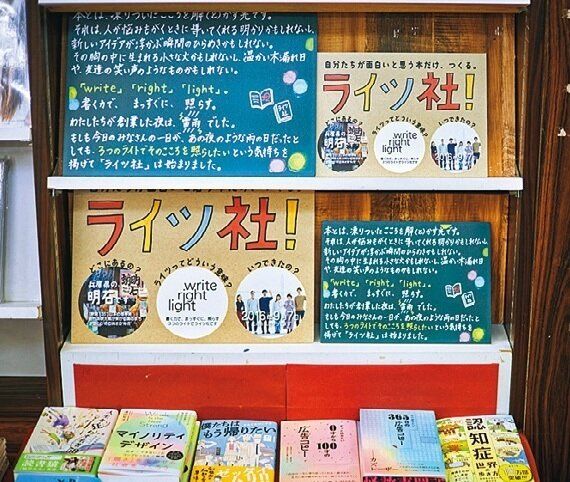 本とは、凍りついたこころを解(と)かす光です。
それは、人が悩みもがくときに導いてくれる明かりかもしれないし、
新しいアイデアが浮かぶ瞬間のひらめきかもしれない。
その胸の中に生まれる小さな火かもしれないし、温かい木漏れ日
や、友達の笑い声のようなものかもしれない。
「write」「right」「light」。
書く力で、まっすぐに、照らす。
わたしたちが創業した夜は、雷雨でした。
もしも今日のみなさんの一日が、あの夜のような雨の日だったと
しても、3つのライトでそのこころを照らしたいという気持ちを
掲げて「ライツ社」は始まりました。
自分たちが面白いと思う本だけ、つくる。
ライツ社!
どこにあるの?
ライツってどういう意味?
いつできたの?
兵庫県の
明石
write
right
light
ライツ社!
どこにあるの?
ライツってどういう意味?
いつできたの?
兵庫県の
明石です
write
right
light
書く力で、まっすぐに、照らす
3つのライトでライツ社です
2016年9月7日
本とは、凍りついたこころを解(と)かす光です。
それは、人が悩みもがくときに導いてくれる明かりかもしれないし、
新しいアイデアが浮かぶ瞬間のひらめきかもしれない。
その胸の中に生まれる小さな火かもしれないし、温かい木漏れ日
や、友達の笑い声のようなものかもしれない。
「write」「right」「light」。
書く力で、まっすぐに、照らす。
わたしたちが創業した夜は、雷雨でした。
もしも今日のみなさんの一日が、あの夜のような雨の日だったと
しても、3つのライトでそのこころを照らしたいという気持ちを
掲げて「ライツ社」は始まりました。
読書感
マイノリティ
デザイン
僕たちは
もう帰りたい
0
100
広告コピー
365
広告コピー
認知症
世界
歩き方